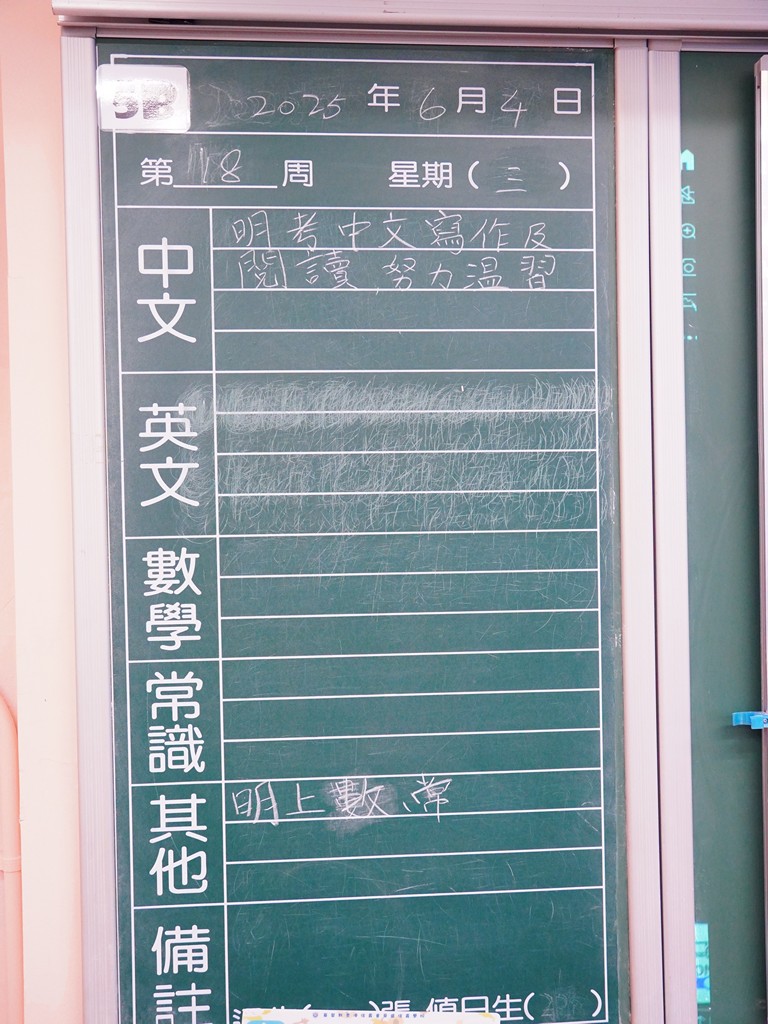 5B 2025 年 6 月 4 日
第 18 周 星期 ( 三 )
中文
明考中文寫作及
閱讀,努力溫習
英文
數學
常識
其他
明上數、常
備註
張 值日生( )